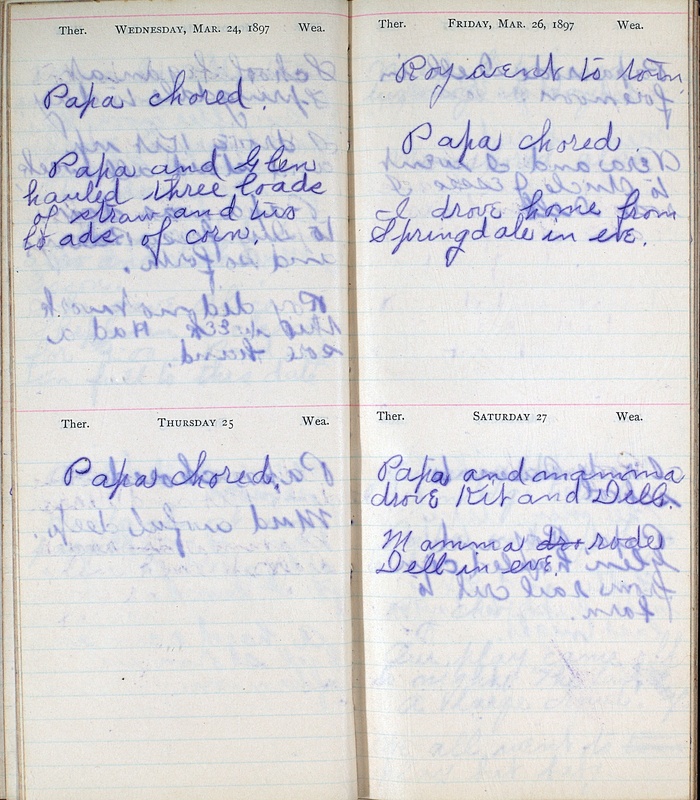 Ther. WEDNESDAY, MAR. 24, 1897 Wea.
Papa chored.
Papa and Glen
hauled three loads
of straw and two
loads of corn.
Ther. THURSDAY 25 Wea.
Papa chored.
Ther. FRIDAY, MAR. 26, 1897 Wea.
Roy went to town
Papa chored.
I drove home from
Springdale in eve.
Ther. SATURDAY 27 Wea.
Papa and mamma
drove Kit and Dell.
Mamma dro rode
Dell in eve.